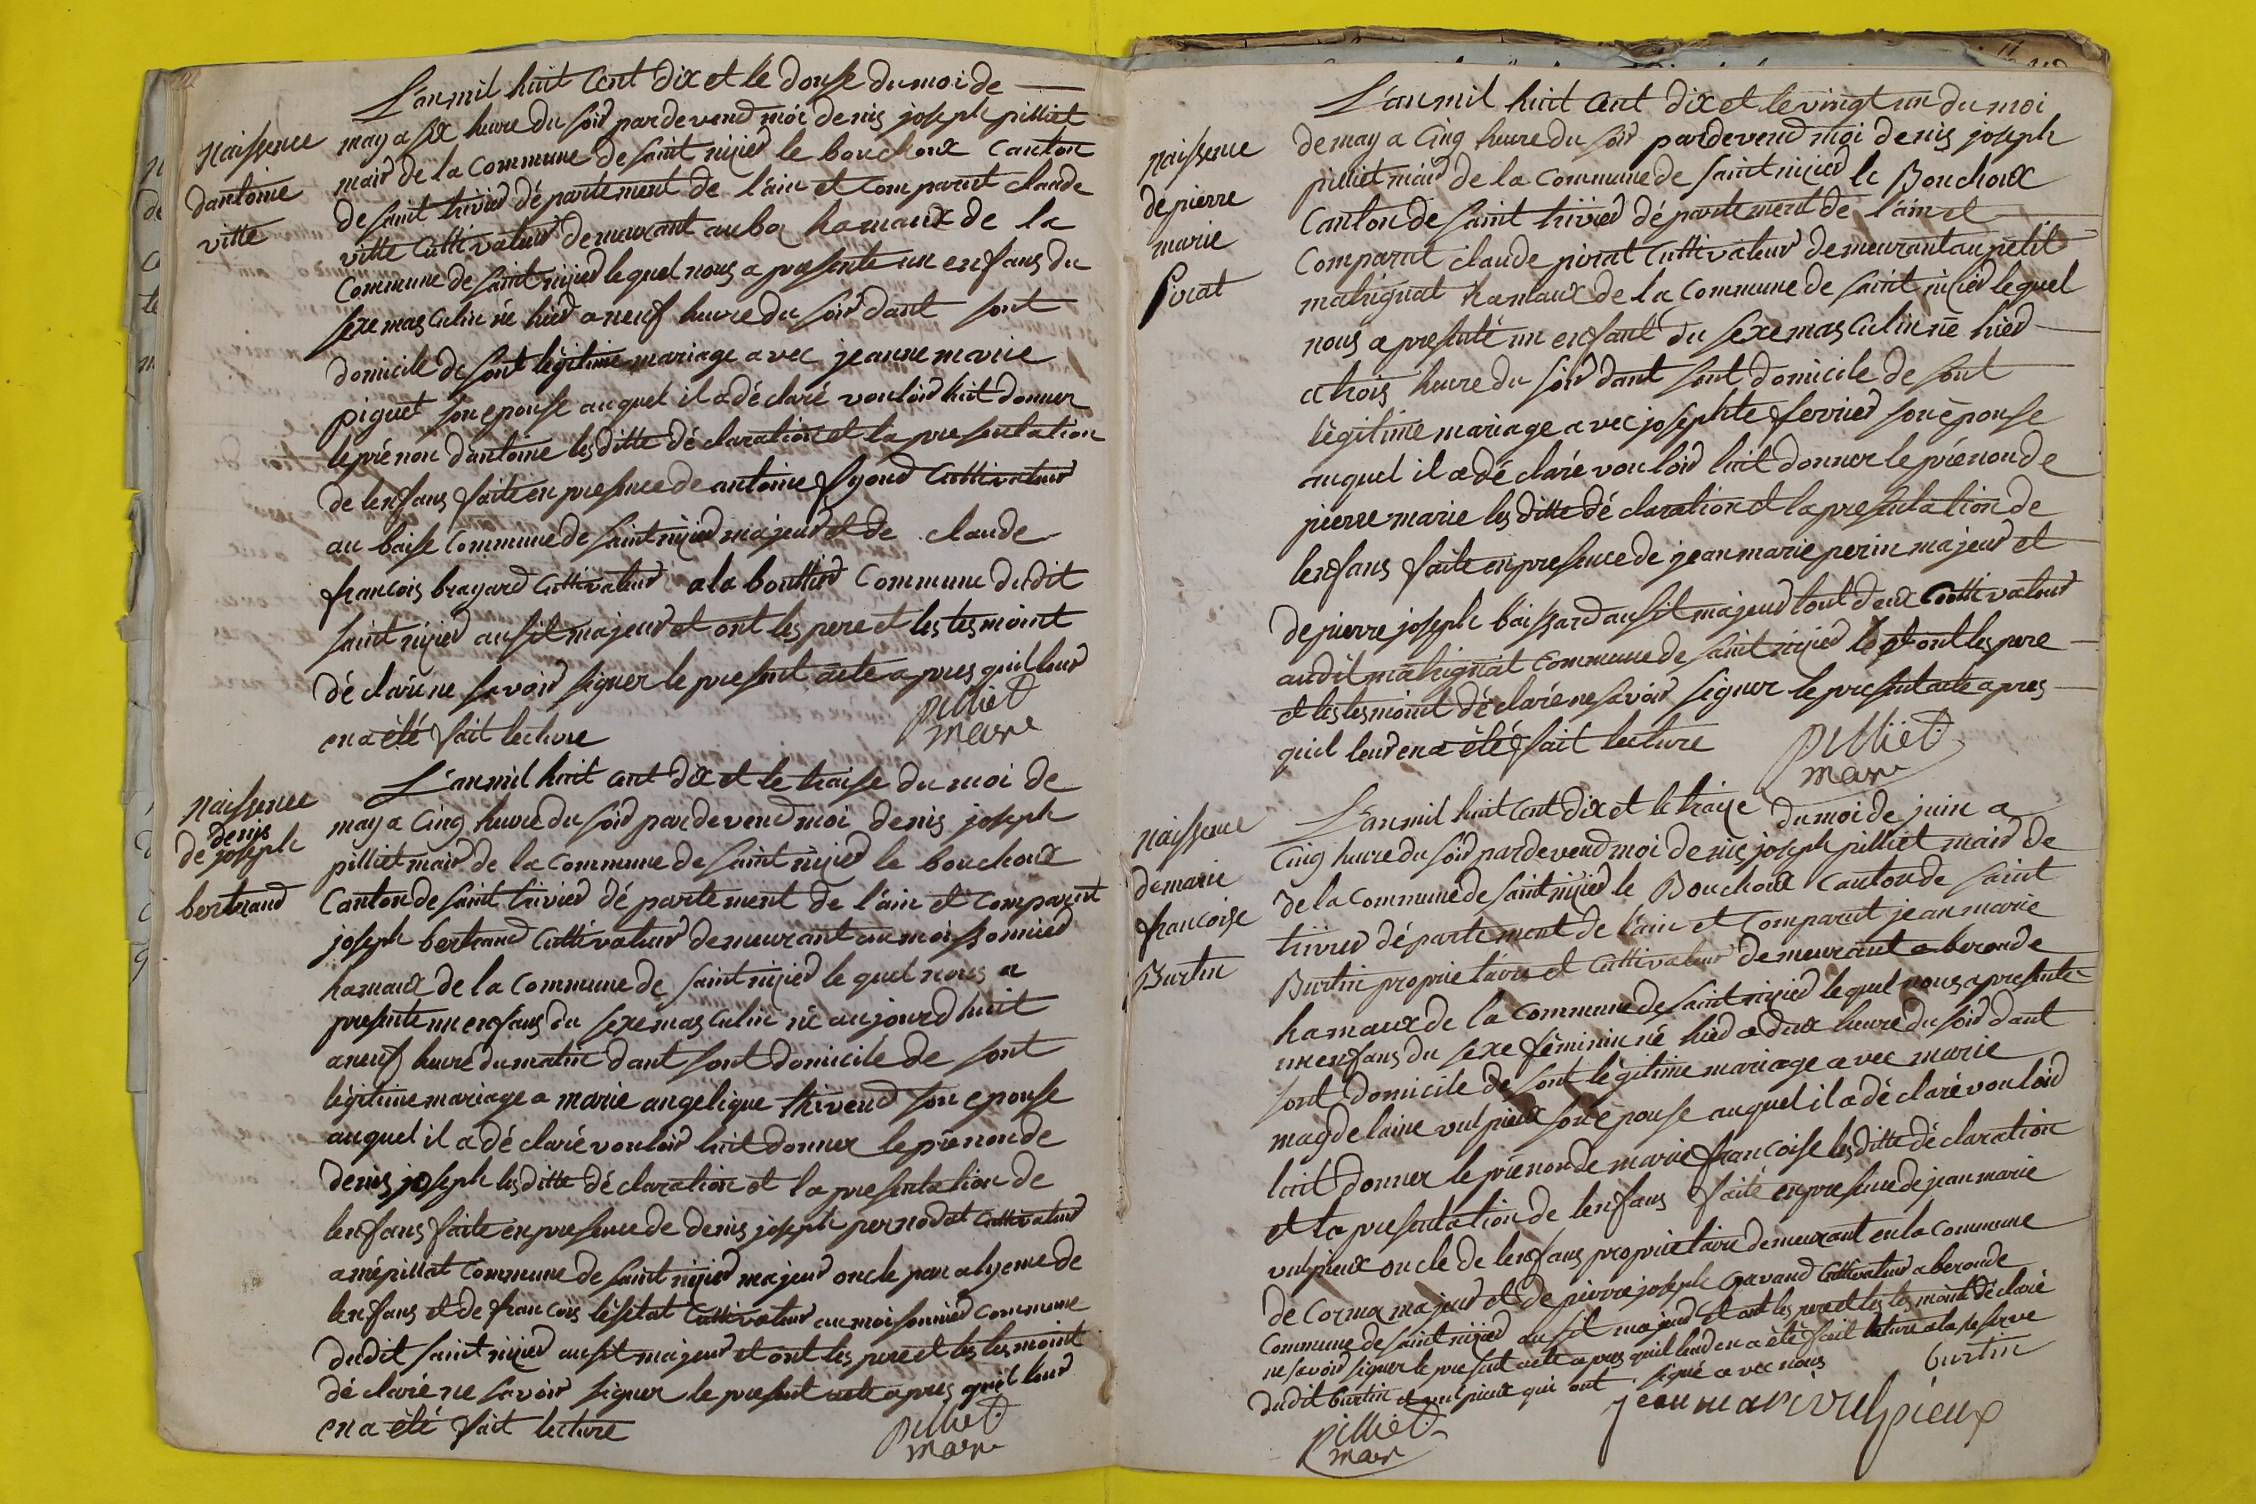 Naissence
dantoine
vitte
L'an mil huit Cent dix et le douse du moi de
may a six heure du soir pardevend moi denis joseph pilliet
mair de la Commune de saint nizier le bouchoux Canton
de saint trivier département de l'ain et Comparut claude
vitte Cultivateur demeurant au bos hamaux de la
Commune de saint nizier lequel nous a presente un enfans du
sexe masculin né hier a neuf heure du soir dant sont
domicile de sont légitime mariage avec jeanne marie
piguet son epouse auquel il a déclaré vouloir luit donner
le prénon dantoine les ditte déclaration et la presentation
de lenfans faite en presence de antoine fyond Cultivateur
au baise Commune de saint nizier majeur et de claude
françois bragard Cultivateur a la bouttier Commune dudit
saint nizier ausit majeur et ont les pere et les tesmoint
déclaré ne savoir signer le present acte apres quil leur
en a été fait lecture
pilliet
mair
Naissence
de denis
joseph
bertrand
L'an mil huit cent dix et le traise du moi de
may a Cinq heure du soir pardevend moi denis joseph
pilliet mair de la Commune de saint nizier le bouchoux
Canton de saint trivier département de l'ain et Comparut
joseph bertrand Cultivateur demeurant au moissonnier
hamaux de la Commune de saint nizier le quel nous a
presente un enfans du sexe masculin né aujourd huit
a neuf heure du matin dant sont domicile de sont
légitime mariage a marie angelique thivend son epouse
auquel il a déclaré vouloir luit donner le prénon de
denis joseph les ditte déclaration et la presentation de
lenfans faite en presence de denis joseph pernodat Cultivateur
a mépillat Commune de saint nizier majeur oncle par alyeme de
lenfans et de francois lésitat Cultivateur au moissonnier Commune
dudit saint nizier ausit majeur et ont les pere et les tesmoint
déclaré ne savoir signer le present acte apres quil leur
en a été fait lecture
pilliet
mair
11
naissence
de pierre
marie
pirat
L'an mil huit Cent dix et le vingt un du moi
de may a Cinq heure du soir pardevend moi denis joseph
pilliet mair de la Commune de saint nizier le Bouchoux
Canton de saint trivier département de l'ain et
Comparut claude pirat Cultivateur demeurant au petit
matrignat hamaux de la Commune de saint nizier lequel
nous a presenté un enfant du sexe masculin né hier
a trois heure du soir dant sont domicile de sont
légitime mariage avec josephte ferrier son épouse
auquel il a déclaré vouloir luit donner le prénon de
pierre marie les ditte déclaration et la presentation de
lenfans faite en presence de jean marie perin majeur et
de pierre joseph baissard ausit majeur tout deux Cultivateur
audit matrignat Commune de saint nizier le et ont les pere
et les tesmoint déclaré ne savoir signer le present acte apres
quil leur en a été fait lecture
pilliet
mair
naissence
de marie
francoise
Burtin
L'an mil huit Cent dix et le traize du moi de juin a
Cinq heure du soir pardevend moi denis joseph pilliet mair de
de la Commune de saint nizier le Bouchoux Canton de saint
trivier département de l'ain et Comparut jean marie
Burtin proprietaire et Cultivateur demeurant a beronde
hamaux de la Commune de saint nizier lequel nous a presente
un enfans du sexe féminin né hier a deux heure du soir dant
sont domicile de sont légitime mariage avec marie
magdelaine vulpieux son épouse auquel il a déclaré vouloir
luit donner le prénon de marie francoise les ditte déclaration
et la presentation de lenfans faite en presence de jean marie
vulpieux oncle de lenfans proprietaire demeurant en la commune
de Cormoz majeur et de pierre joseph gavand Cultivateur a beronde
Commune de saint nizier ausit majeur et ont les pere et les tesmoint déclaré
ne savoir signer le present acte apres quil leur en a été fait lecture a la reserve
dudit burtin et vulpieux qui ont signé avec nous
burtin
jean marie vulpieux
pilliet
mair